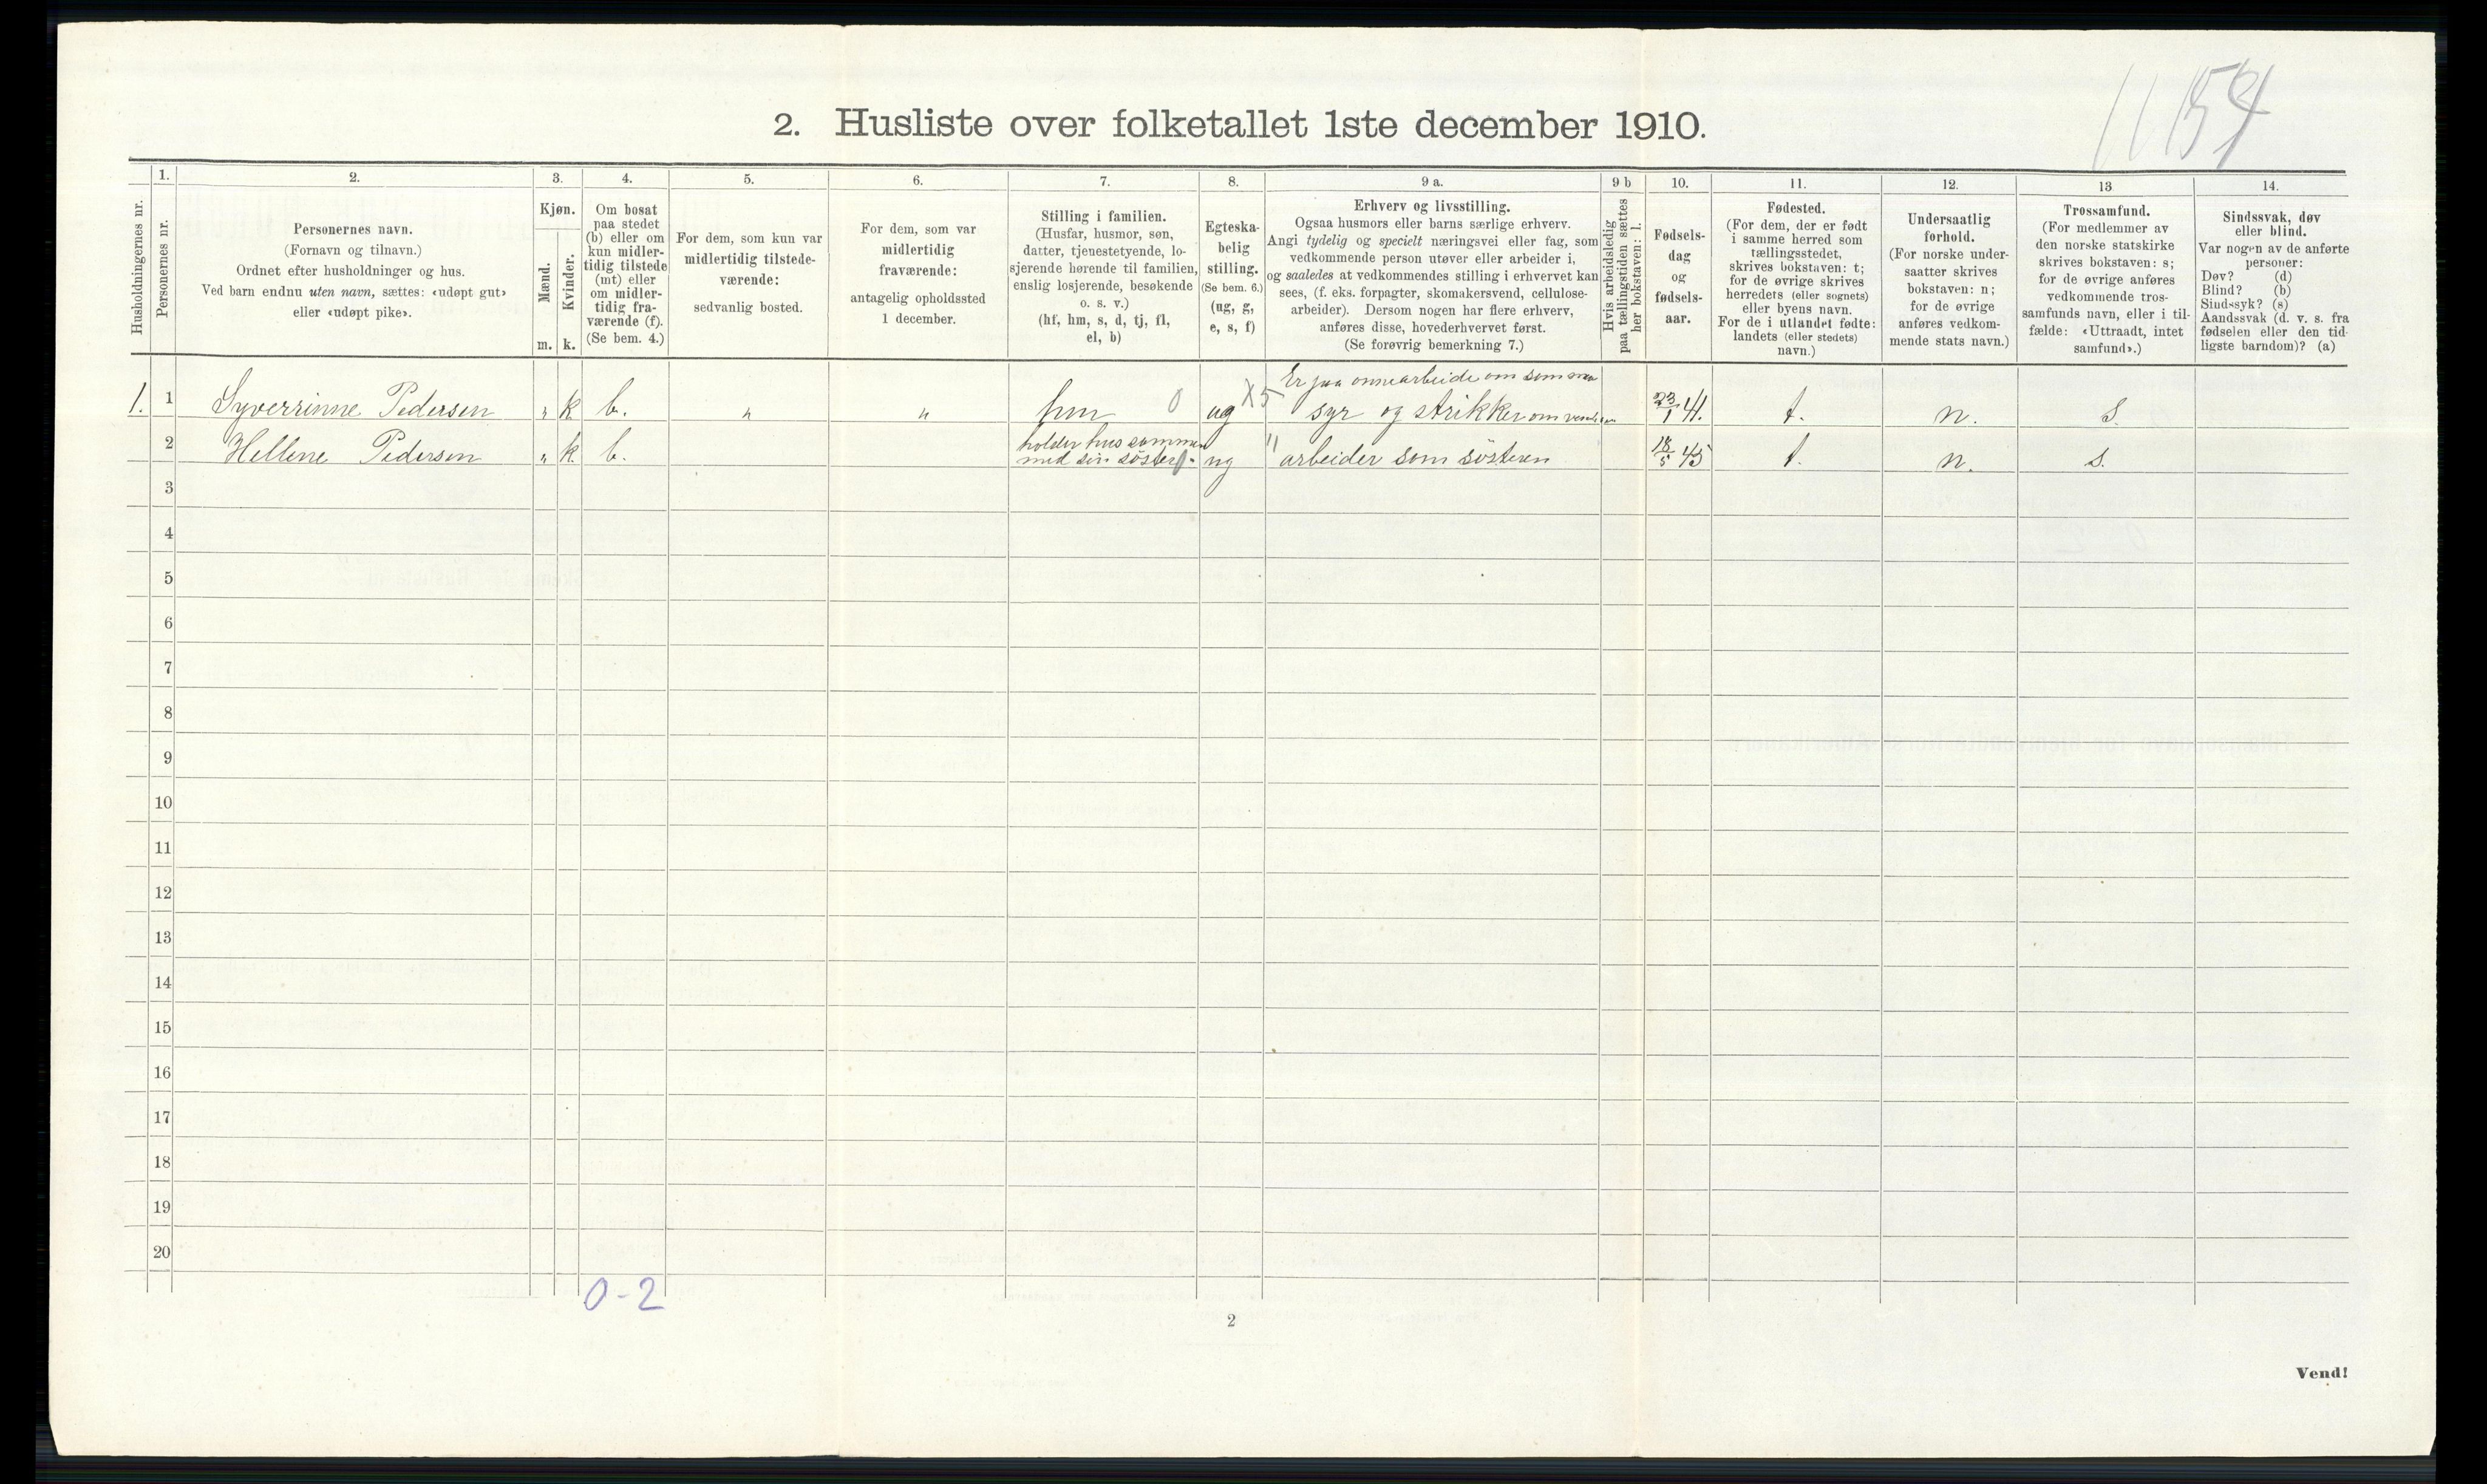 1154
2. Husliste over folketallet 1ste december 1910.
Husholdningernes nr.
1.
Personernes nr.
2.
Personernes navn.
(Fornavn og tilnavn.)
Ordnet efter husholdninger og hus.
Ved barn endnu uten navn, sættes: «udøpt gut»
eller «udøpt pike».
3.
Kjøn.
Mænd.
Kvinder.
m. k.
4.
Om bosat
paa stedet
(b) eller om
kun midler-
tidig tilstede
(mt) eller
om midler-
tidig fra-
værende (f).
(Se bem. 4.)
5.
For dem, som kun var
midlertidig tilstede-
værende:
sedvanlig bosted.
6.
For dem, som var
midlertidig
fraværende:
antagelig opholdssted
1 december.
7.
Stilling i familien.
(Husfar, husmor, søn,
datter, tjenestetyende, lo-
sjerende hørende til familien,
enslig losjerende, besøkende
o. s. v.)
(hf, hm, s, d, tj, fl,
el, b)
8.
Egteska-
belig
stilling.
(Se bem. 6.)
(ug, g,
e, s, f)
9 a.
Erhverv og livsstilling.
Ogsaa husmors eller barns særlige erhverv.
Angi tydelig og specielt næringsvei eller fag, som
vedkommende person utøver eller arbeider i,
og saaledes at vedkommendes stilling i erhvervet kan
sees, (f. eks. forpagter, skomakersvend, cellulose-
arbeider). Dersom nogen har flere erhverv,
anføres disse, hovederhvervet først.
(Se forøvrig bemerkning 7.)
9 b
Hvis arbeidsledig
paa tællingstiden sættes
her bokstaven: l.
10.
Fødsels-
dag
og
fødsels-
aar.
11.
Fødested.
(For dem, der er født
i samme herred som
tællingsstedet,
skrives bokstaven: t;
for de øvrige skrives
herredets (eller sognets)
eller byens navn.
For de i utlandet fødte:
landets (eller stedets)
navn.)
12.
Undersaatlig
forhold.
(For norske under-
saatter skrives
bokstaven: n;
for de øvrige
anføres vedkom-
mende stats navn.)
13
Trossamfund.
(For medlemmer av
den norske statskirke
skrives bokstaven: s;
for de øvrige anføres
vedkommende tros-
samfunds navn, eller i til-
fælde: «Uttraadt, intet
samfund».)
14.
Sindssvak, døv
eller blind.
Var nogen av de anførte
personer:
Døv? (d)
Blind? (b)
Sindssyk? (s)
Aandssvak (d. v. s. fra
fødselen eller den tid-
ligste barndom)? (a)
Er paa onnearbeide om sommer
1. 1 Syverrinne Pedersen " k b. " " hm 0 ug X5 syr og strikker om 23/1 41. t. n. s.
holder hus sammen
2 Hellene Pedersen " k. b. med sin søster ug " arbeider som søsteren 18/5 45 t. n. s.
3
4
5
6
7
8
9
10
11
12
13
14
15
16
17
18
19
20
0-2
2
Vend!